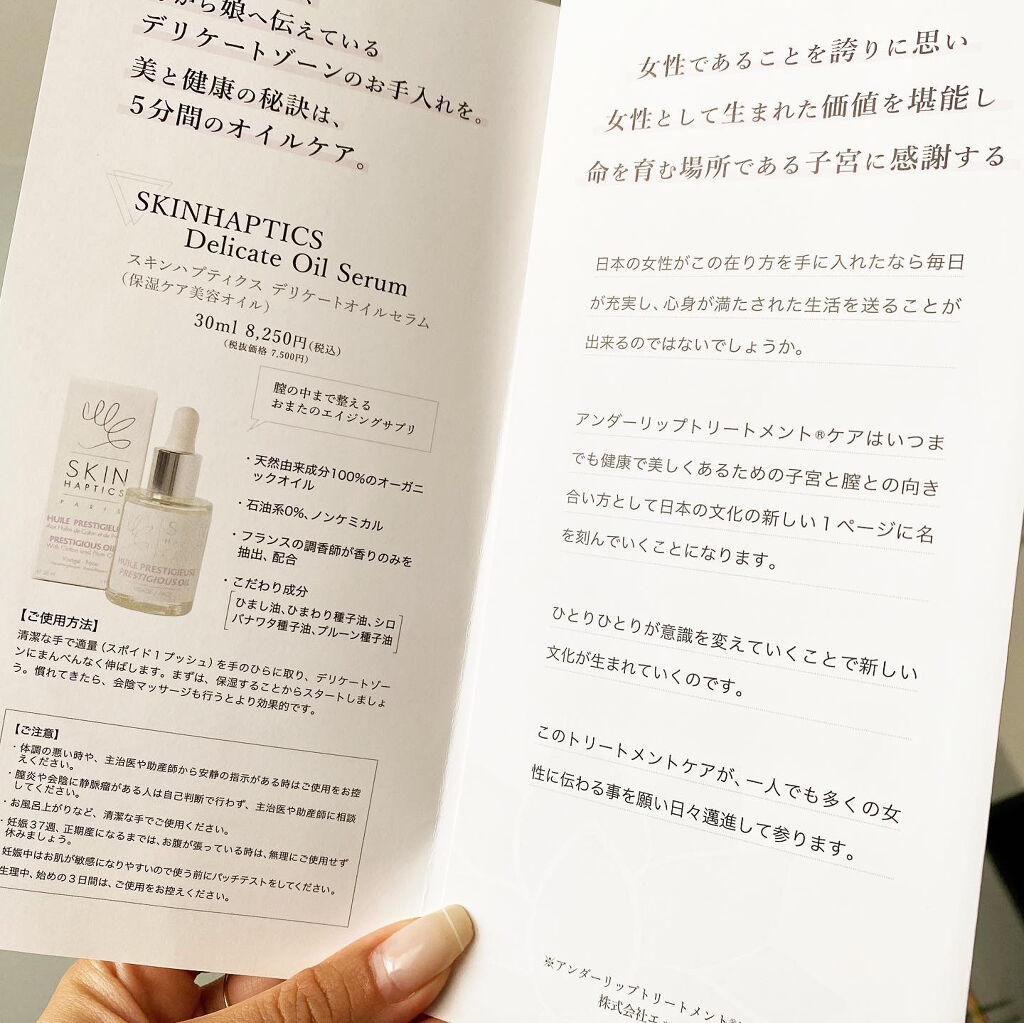 から娘へ伝えている
デリケートゾーンのお手入れを。
美と健康の秘訣は、
5分間のオイルケア。
SKINHAPTICS
Delicate Oil Serum
スキンハプティクス デリケートオイルセラム
(保湿ケア美容オイル)
30ml 8,250円(税込)
(税抜価格 7,500円)
膣の中まで整える
おまたのエイジングサプリ
SKIN
HAPTICS
PARIS
HUILE PRESTIGIEUSE
PRESTIGIOUS OIL
HUILE PRESTIGIEUSE
PRESTIGIOUS OIL
・天然由来成分100%のオーガニ
ックオイル
・石油系0%、ノンケミカル
・フランスの調香師が香りのみを
抽出、配合
・こだわり成分
ひまし油、ひまわり種子油、シロ
バナワタ種子油、プルーン種子油
【ご使用方法】
清潔な手で適量(スポイド1プッシュ)を手のひらに取り、デリケートゾー
ンにまんべんなく伸ばします。まずは、保湿することからスタートしましょ
う。慣れてきたら、会陰マッサージも行うとより効果的です。
【ご注意】
・体調の悪い時や、主治医や助産師から安静の指示がある時はご使用をお控
えください。
・膣炎や会陰に静脈瘤がある人は自己判断で行わず、主治医や助産師に相談
してください。
・お風呂上がりなど、清潔な手でご使用ください。
・妊娠37週、正期産になるまでは、お腹が張っている時は、無理にご使用せず
休みましょう。
妊娠中はお肌が敏感になりやすいので使う前にパッチテストをしてください。
生理中、始めの3日間は、ご使用をお控えください。
女性であることを誇りに思い
女性として生まれた価値を堪能し
命を育む場所である子宮に感謝する
日本の女性がこの在り方を手に入れたなら毎日
が充実し、心身が満たされた生活を送ることが
出来るのではないでしょうか。
アンダーリップトリートメント®ケアはいつま
でも健康で美しくあるための子宮と膣との向き
合い方として日本の文化の新しい1ページに名
を刻んでいくことになります。
ひとりひとりが意識を変えていくことで新しい
文化が生まれていくのです。
このトリートメントケアが、一人でも多くの女
性に伝わる事を願い日々邁進して参ります。
※アンダーリップトリートメント®
株式会社エ